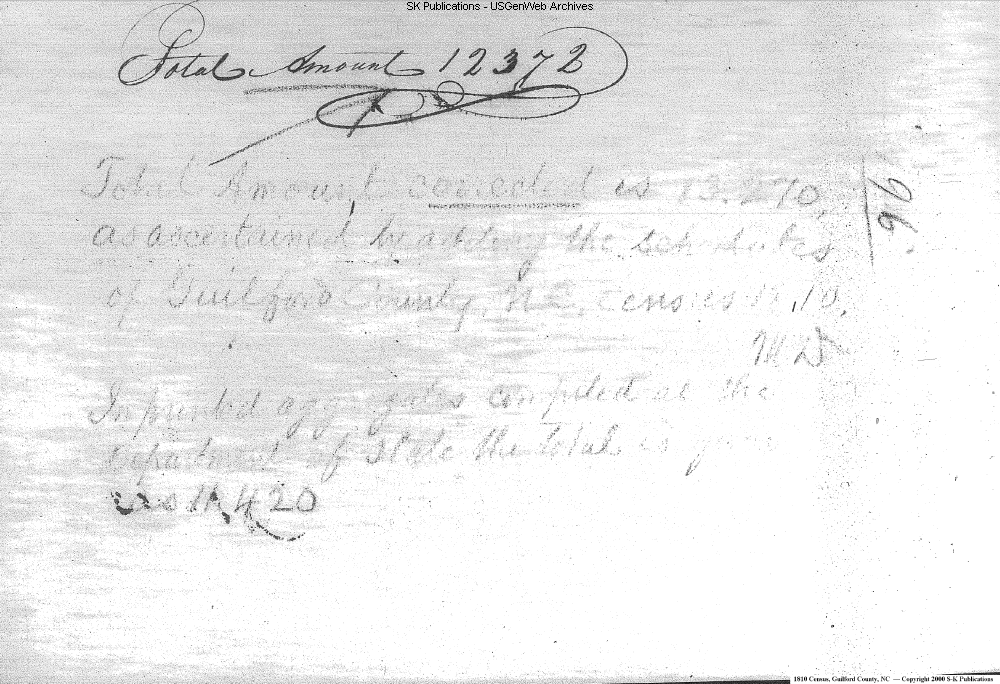 SK Publications - USGenWeb Archives
Total Amount 12372
Total Amount corrected is 13.270,
as ascertained by adding the schedules
of Guilford County, N.C. census 1810.
96
In printed aggregates compiled at the
Department of State the total is given
as 11,420
1810 Census, Guilford County, NC — Copyright 2000 S-K Publications